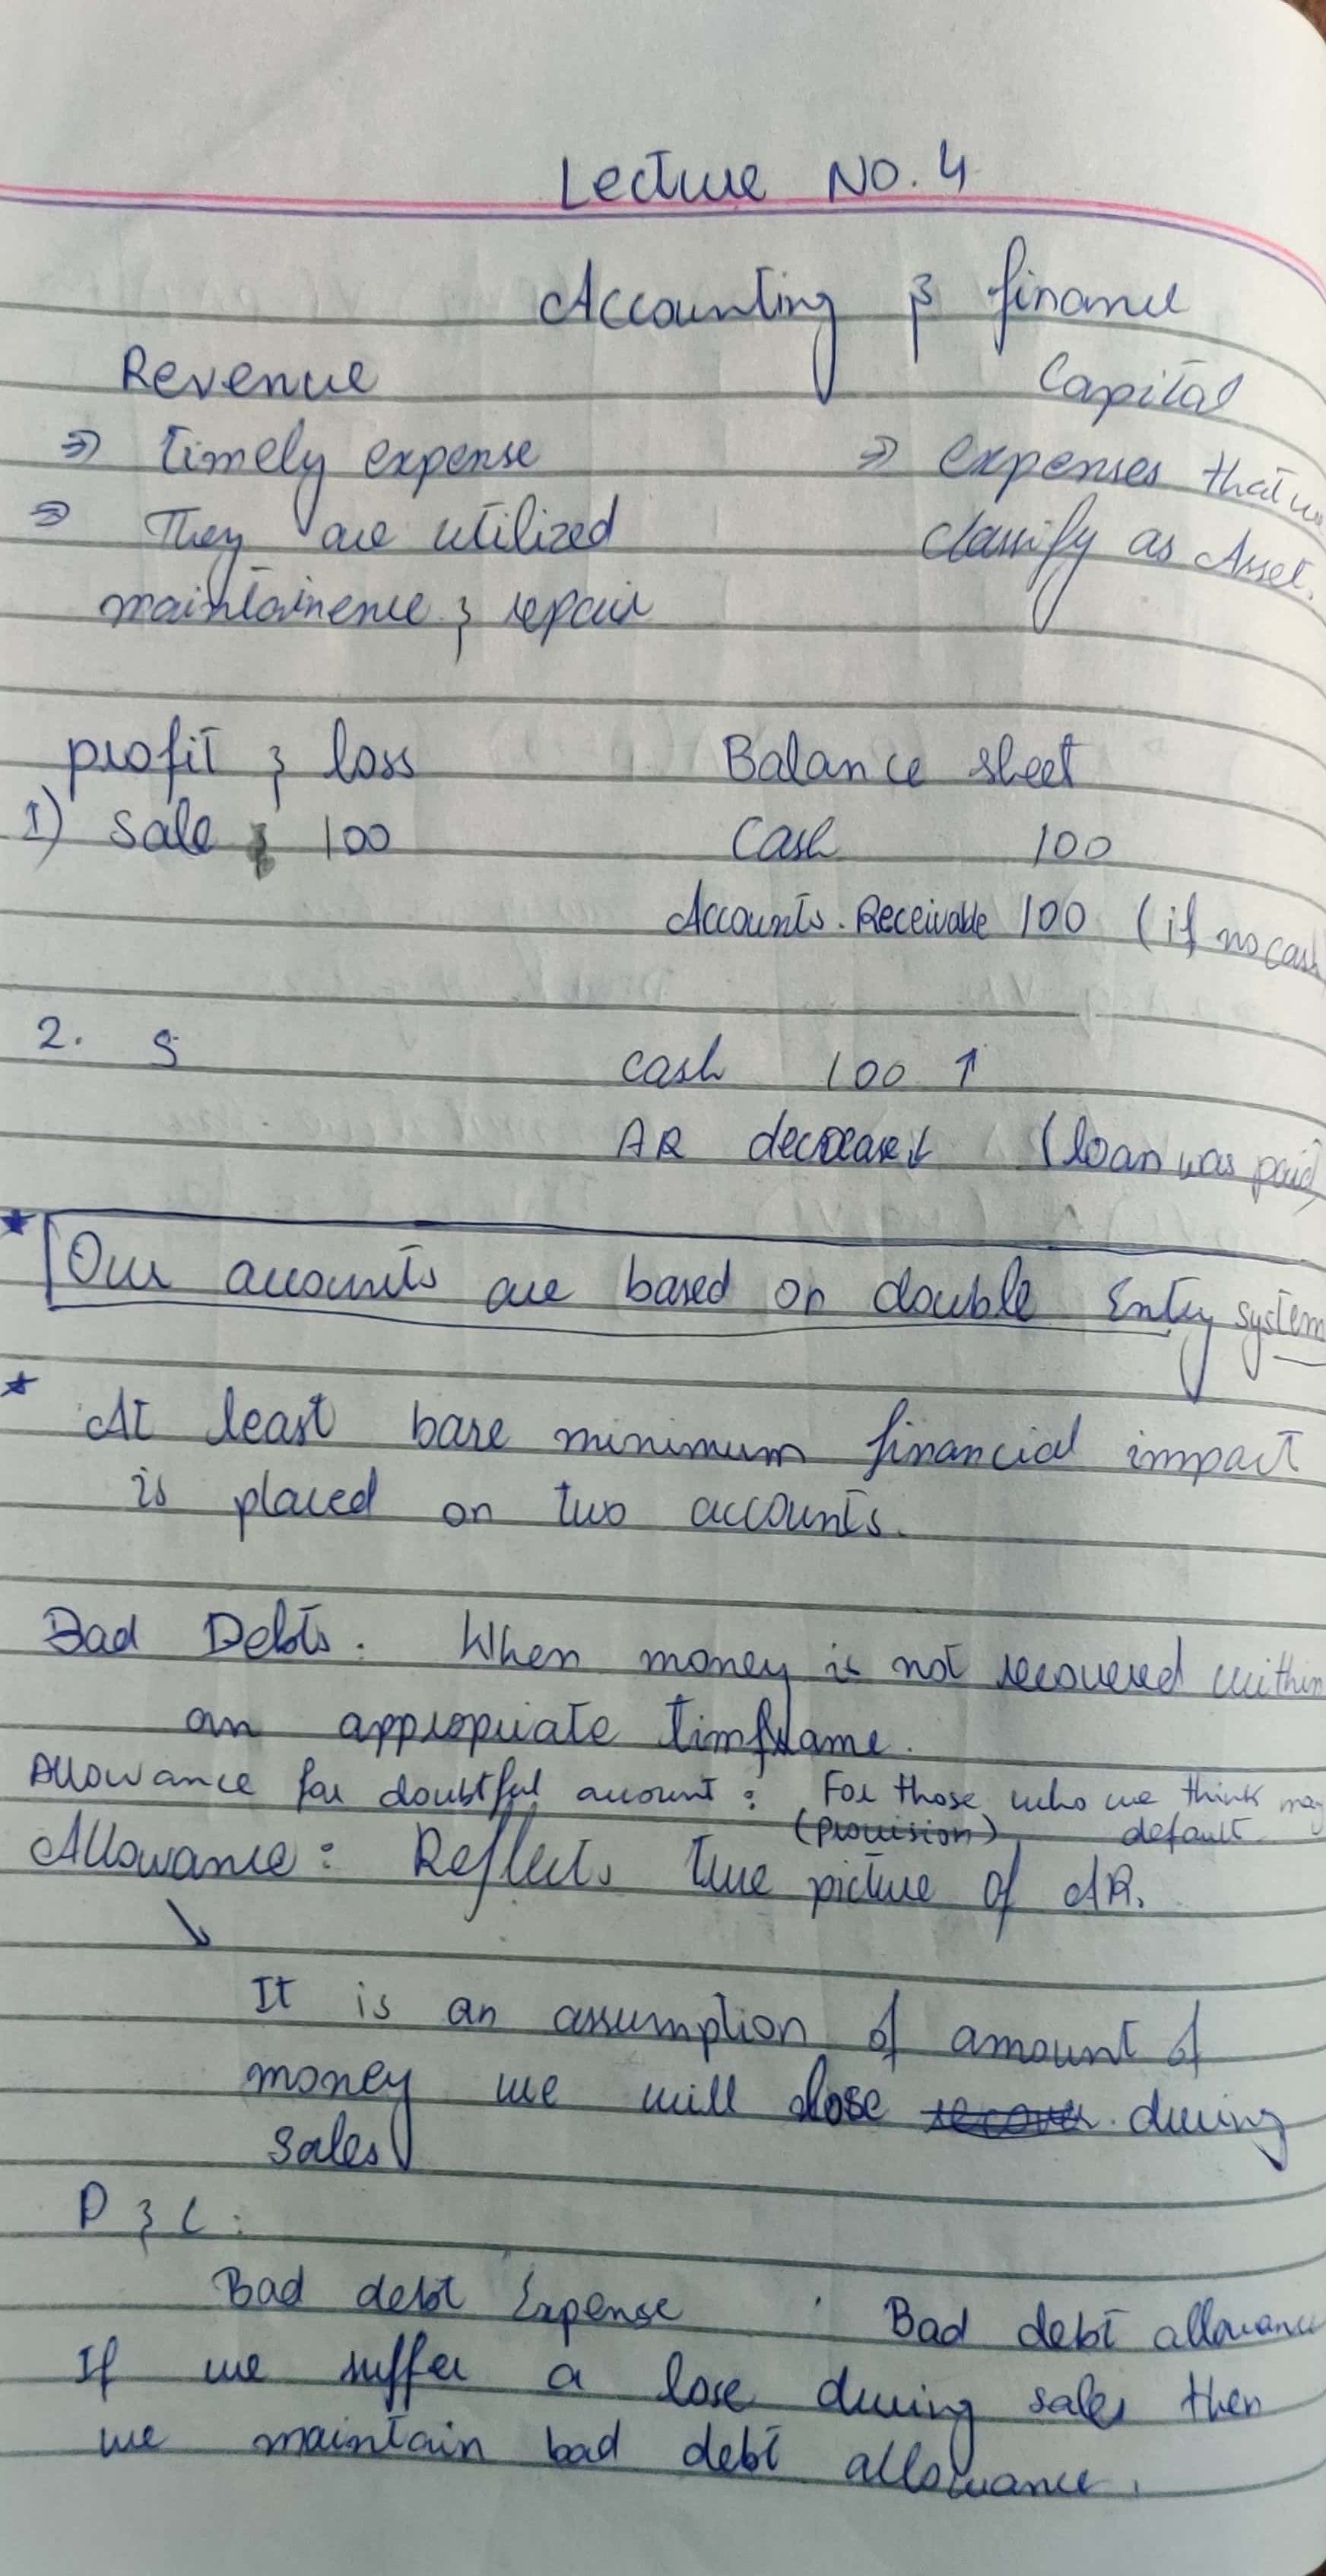 Lecture No. 4
Accounting & finance
Revenue Capital
⇒ timely expense ⇒ expenses that we
⇒ They are utilized classify as Asset.
maintainence & repair
profit & loss Balance sheet
1) Sale 100 Cash 100
Accounts. Receivable 100 (if no cash
2. S cash 100 ↑
AR decrease ↓ (loan was paid)
★ Our accounts are based on double Entry system
★ At least bare minimum financial impact
is placed on two accounts.
Bad Debts: When money is not recovered within
an appropriate timframe.
Allowance for doubtful account: For those who we think may
(provision) default
Allowance: Reflects true picture of AR.
↘
It is an assumption of amount of
money we will lose during
sales
P & L:
Bad debt Expense : Bad debt allowance
If we suffer a lose during sales then
we maintain bad debt allowance.